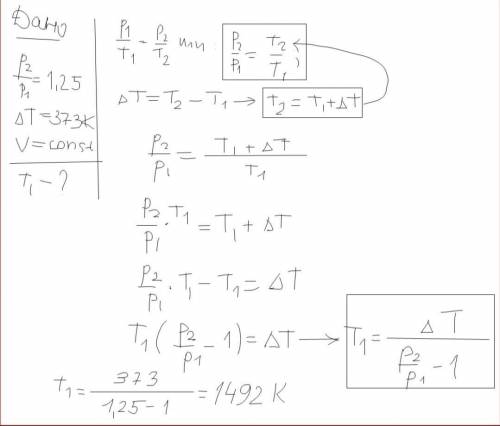 Дано
p2/p1 = 1,25
ΔT = 373K
V = const
T1 - ?
p1/T1 - p2/T2 или p2/p1 = T2/T1
ΔT = T2 - T1 → T2 = T1 + ΔT
p2/p1 = (T1 + ΔT)/T1
p2/p1 · T1 = T1 + ΔT
p2/p1 · T1 - T1 = ΔT
T1 (p2/p1 - 1) = ΔT → T1 = ΔT/(p2/p1 - 1)
t1 = 373/(1,25-1) = 1492 K